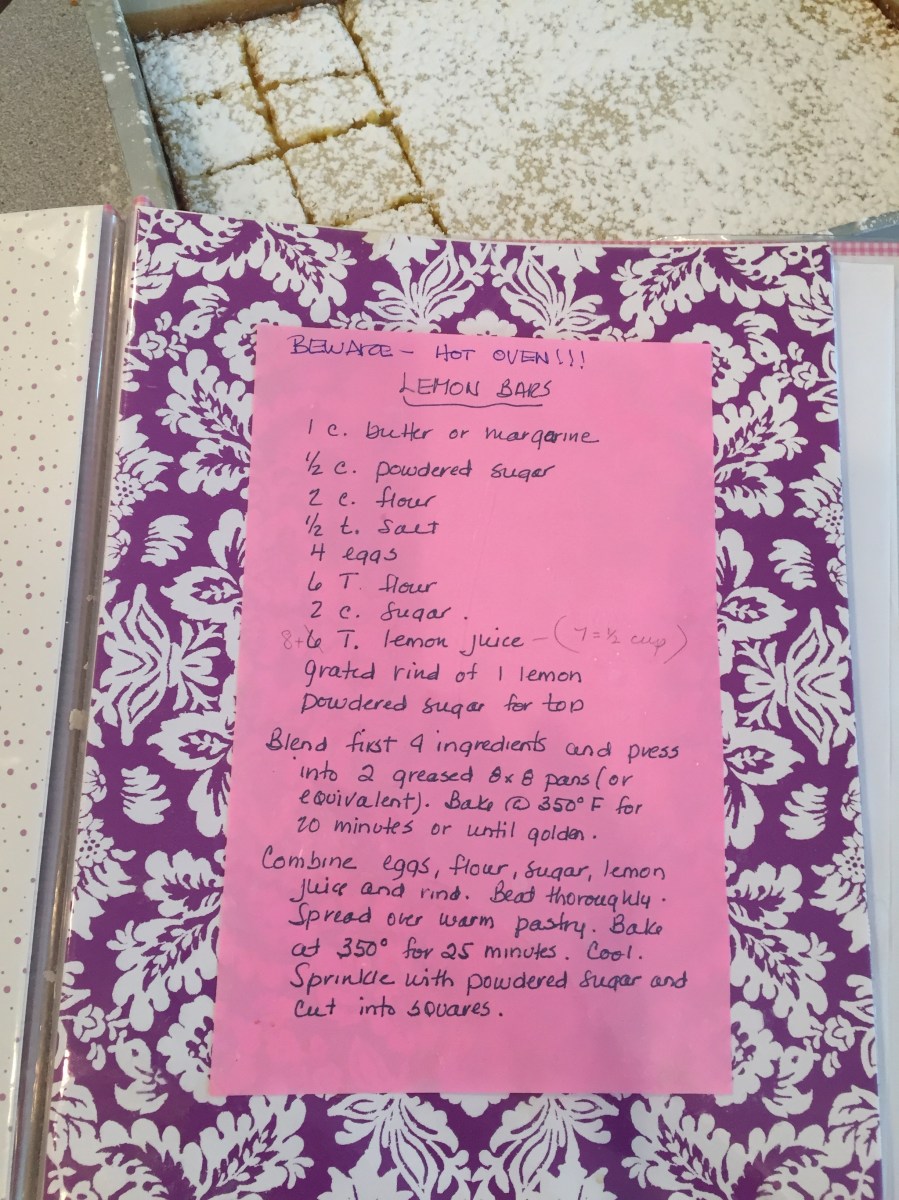 BEWARE - HOT OVEN!!!
LEMON BARS
1 c. butter or margarine
½ c. powdered sugar
2 c. flour
½ t. Salt
4 eggs
6 T. flour
2 c. Sugar.
8+ 6 T. lemon juice - (7=½ cup)
grated rind of 1 lemon
Powdered sugar for top
Blend first 4 ingredients and press
into 2 greased 8x8 pans (or
equivalent). Bake @ 350° F for
20 minutes or until golden.
Combine eggs, flour, sugar, lemon
juice and rind. Beat thoroughly.
Spread over warm pastry. Bake
at 350° for 25 minutes. Cool.
Sprinkle with powdered sugar and
cut into squares.